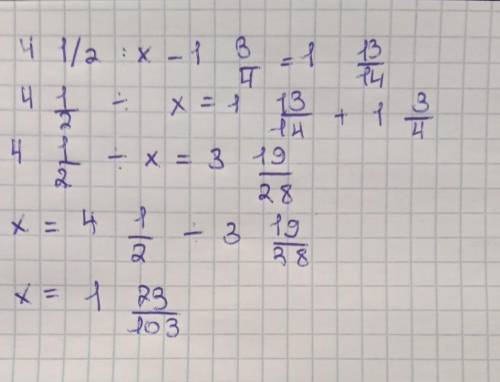 4 1/2 : x - 1 3/4 = 1 13/14
4 1/2 ÷ x = 1 13/14 + 1 3/4
4 1/2 ÷ x = 3 19/28
x = 4 1/2 ÷ 3 19/28
x = 1 23/103